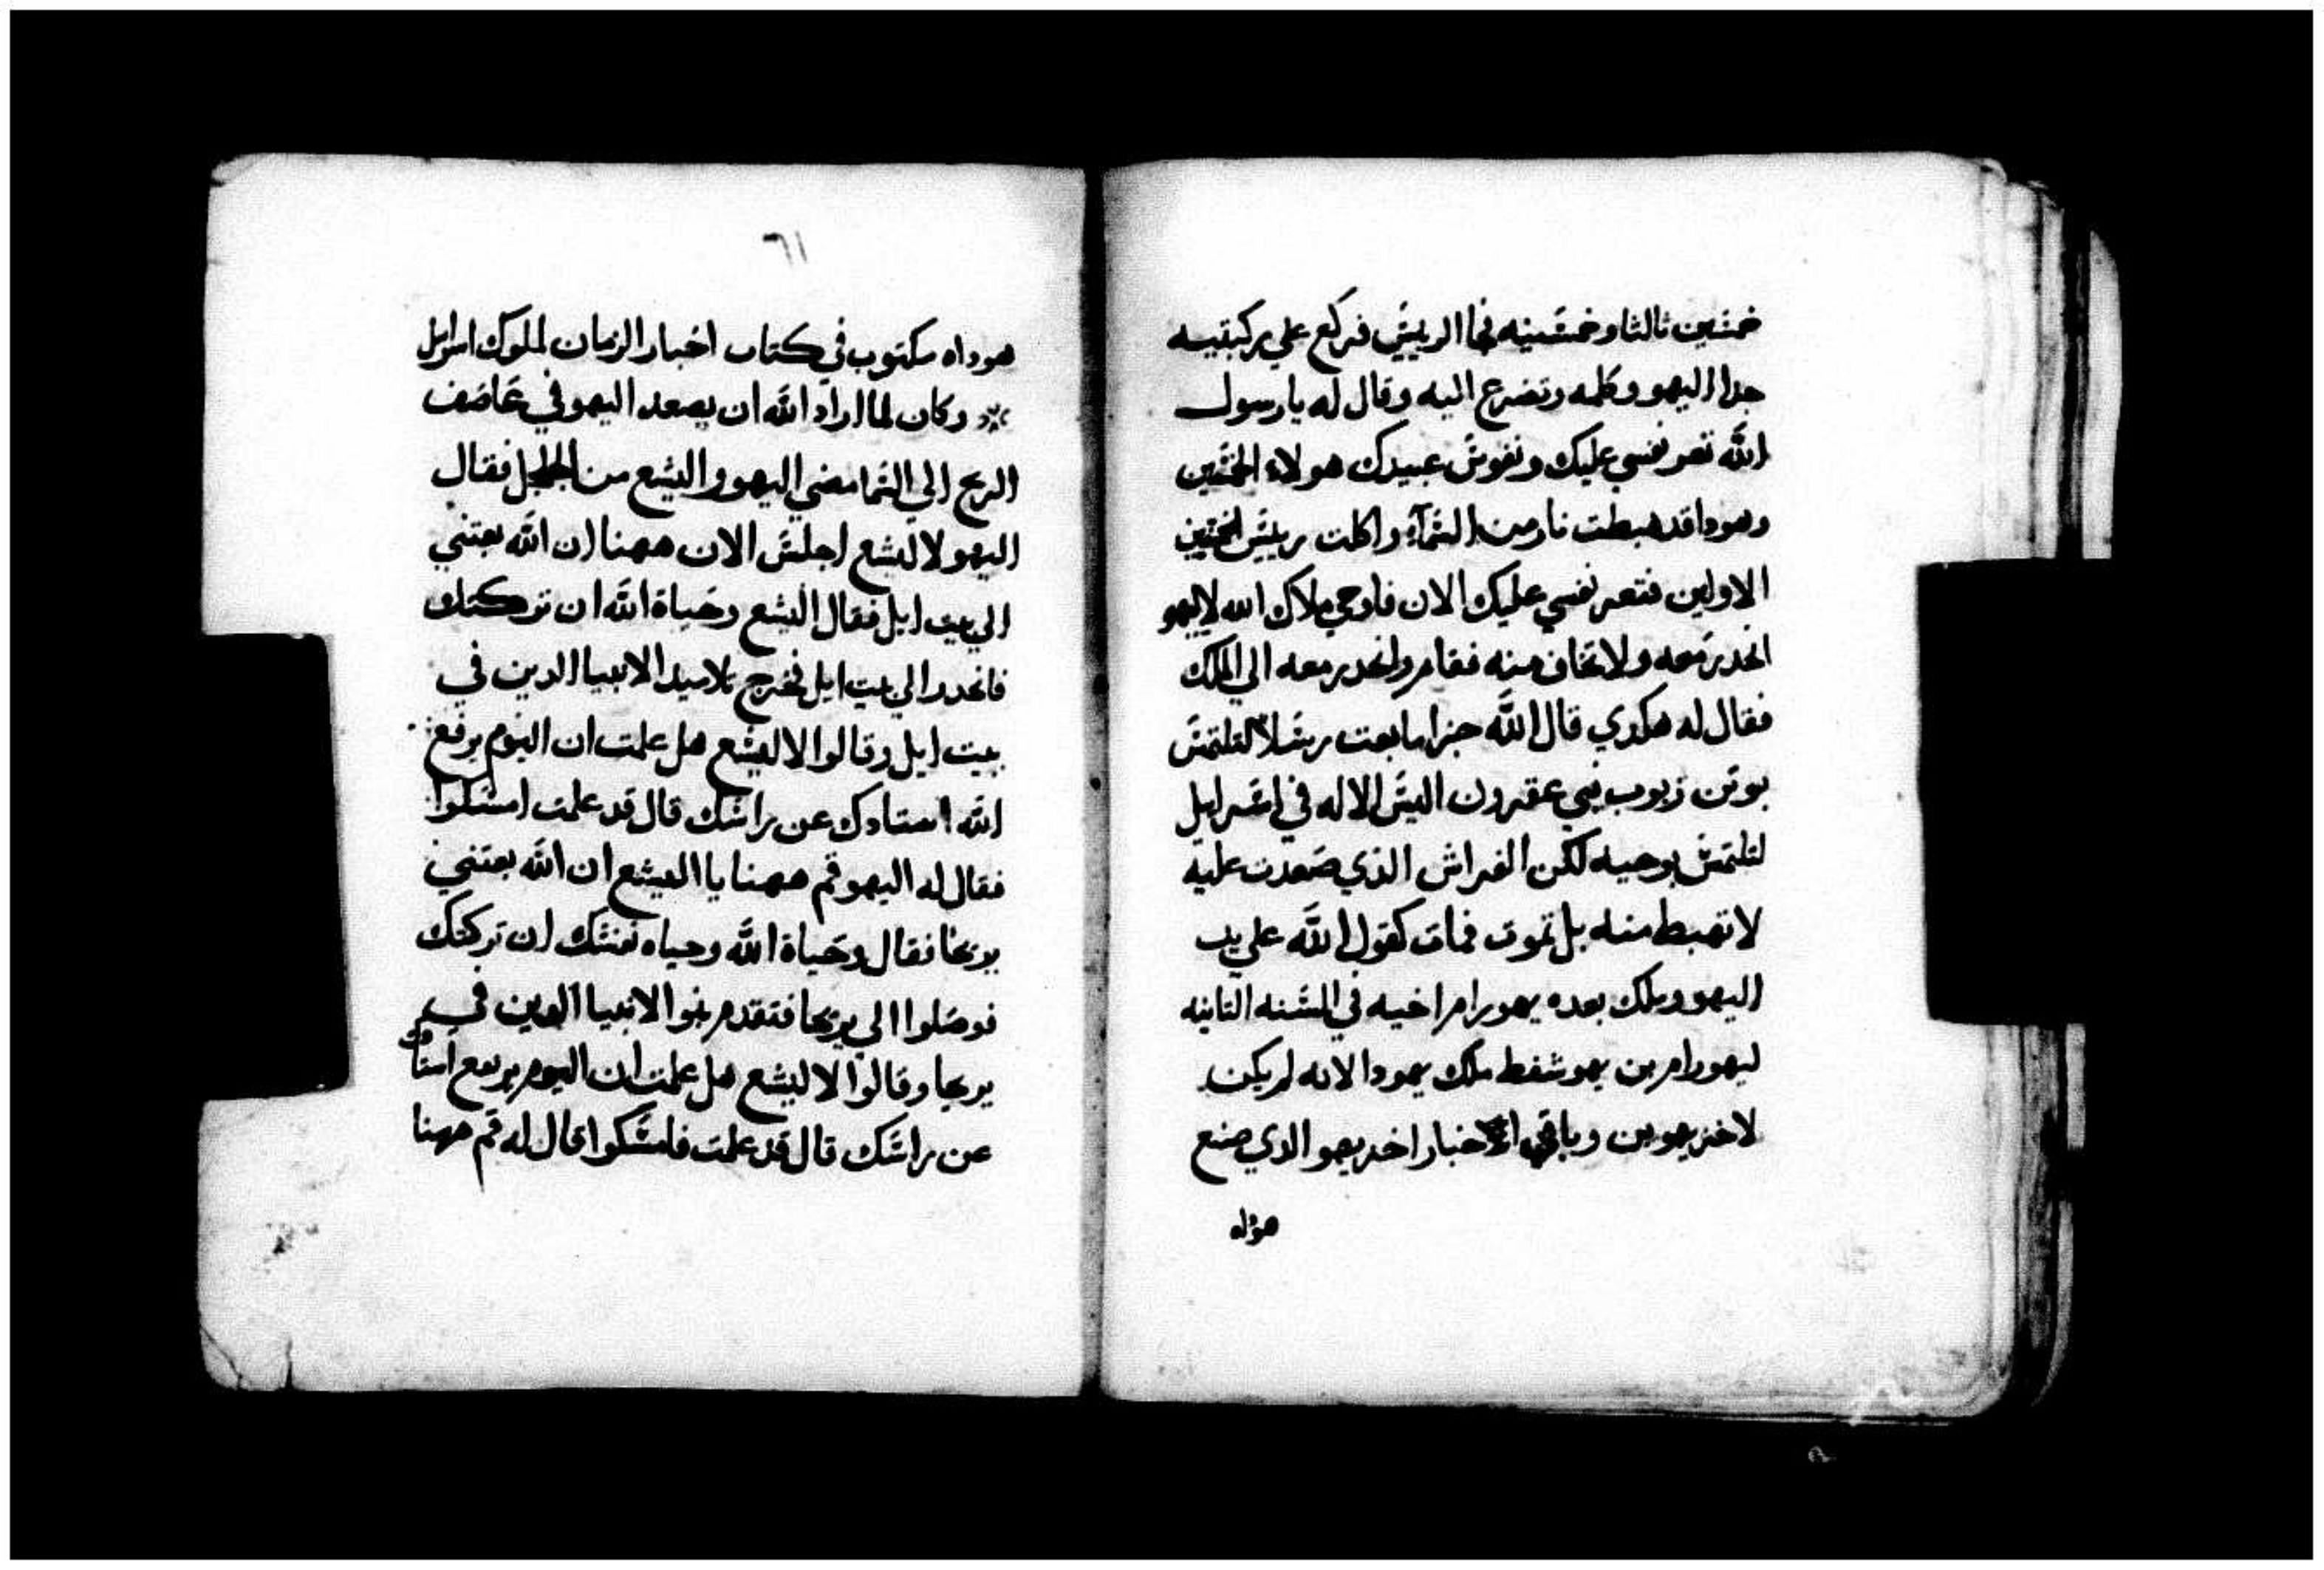 خمسين ثالثا وخمسينه فجا الرييس فركع علي ركبتيه
حدا اليهو وكلمه وتضرع اليه وقال له يا رسول
الله تعز نفسي عليك ونفوس عبيدك هولاء الخمسين
وهودا قد هبطت نار من السمآء واكلت رييس الخمسين
الاولين فتعز نفسي عليك الان فاوحي ملاك الله لاليهو
انحدر معه ولا تخاف منه فقام وانحدر معه الي الملك
فقال له هكدي قال الله جزا ما بعت رسلا لتلتمس
بوثن زبوب نبي عقرون اليس الاله في اسرايل
لتلتمس بوحيه لكن الفراش الذي صعدت عليه
لا تهبط منه بل تموت فمات كقول الله علي يد
اليهو وملك بعده يهورام اخيه في السنه التانيه
ليهورام بن يهوشفط ملك يهودا لانه لم يكن
لاخزيهو بن وباقي اخبار اخزيهو الدي صنع
هوله
٦١
هوداه مكتوب في كتاب اخبار الزمان لملوك اسرايل
وكان لما اراد الله ان يصعد اليهو في عاصف
الريح الي السما مضي اليهو واليشع من الجلجل فقال
اليهو لاليشع اجلس الان ههنا ان الله بعتني
الي بيت ايل فقال اليشع وحياة الله ان تركتك
فانحدر الي بيت ايل فخرج تلاميد الانبيا الدين في
بيت ايل وقالوا لاليشع هل علمت ان اليوم يرفع
الله استادك عن راسك قال قد علمت امسكوا
فقال له اليهو قم ههنا يا اليشع ان الله بعتني
يريحا فقال وحياة الله وحياه نفسك ان تركتك
فوصلوا الي يريحا فتقدم بنوا الانبيا الدين في
يريحا وقالوا لاليشع هل علمت ان اليوم يرفع استادك
عن راسك قال قد علمت فامسكوا قال له قم ههنا